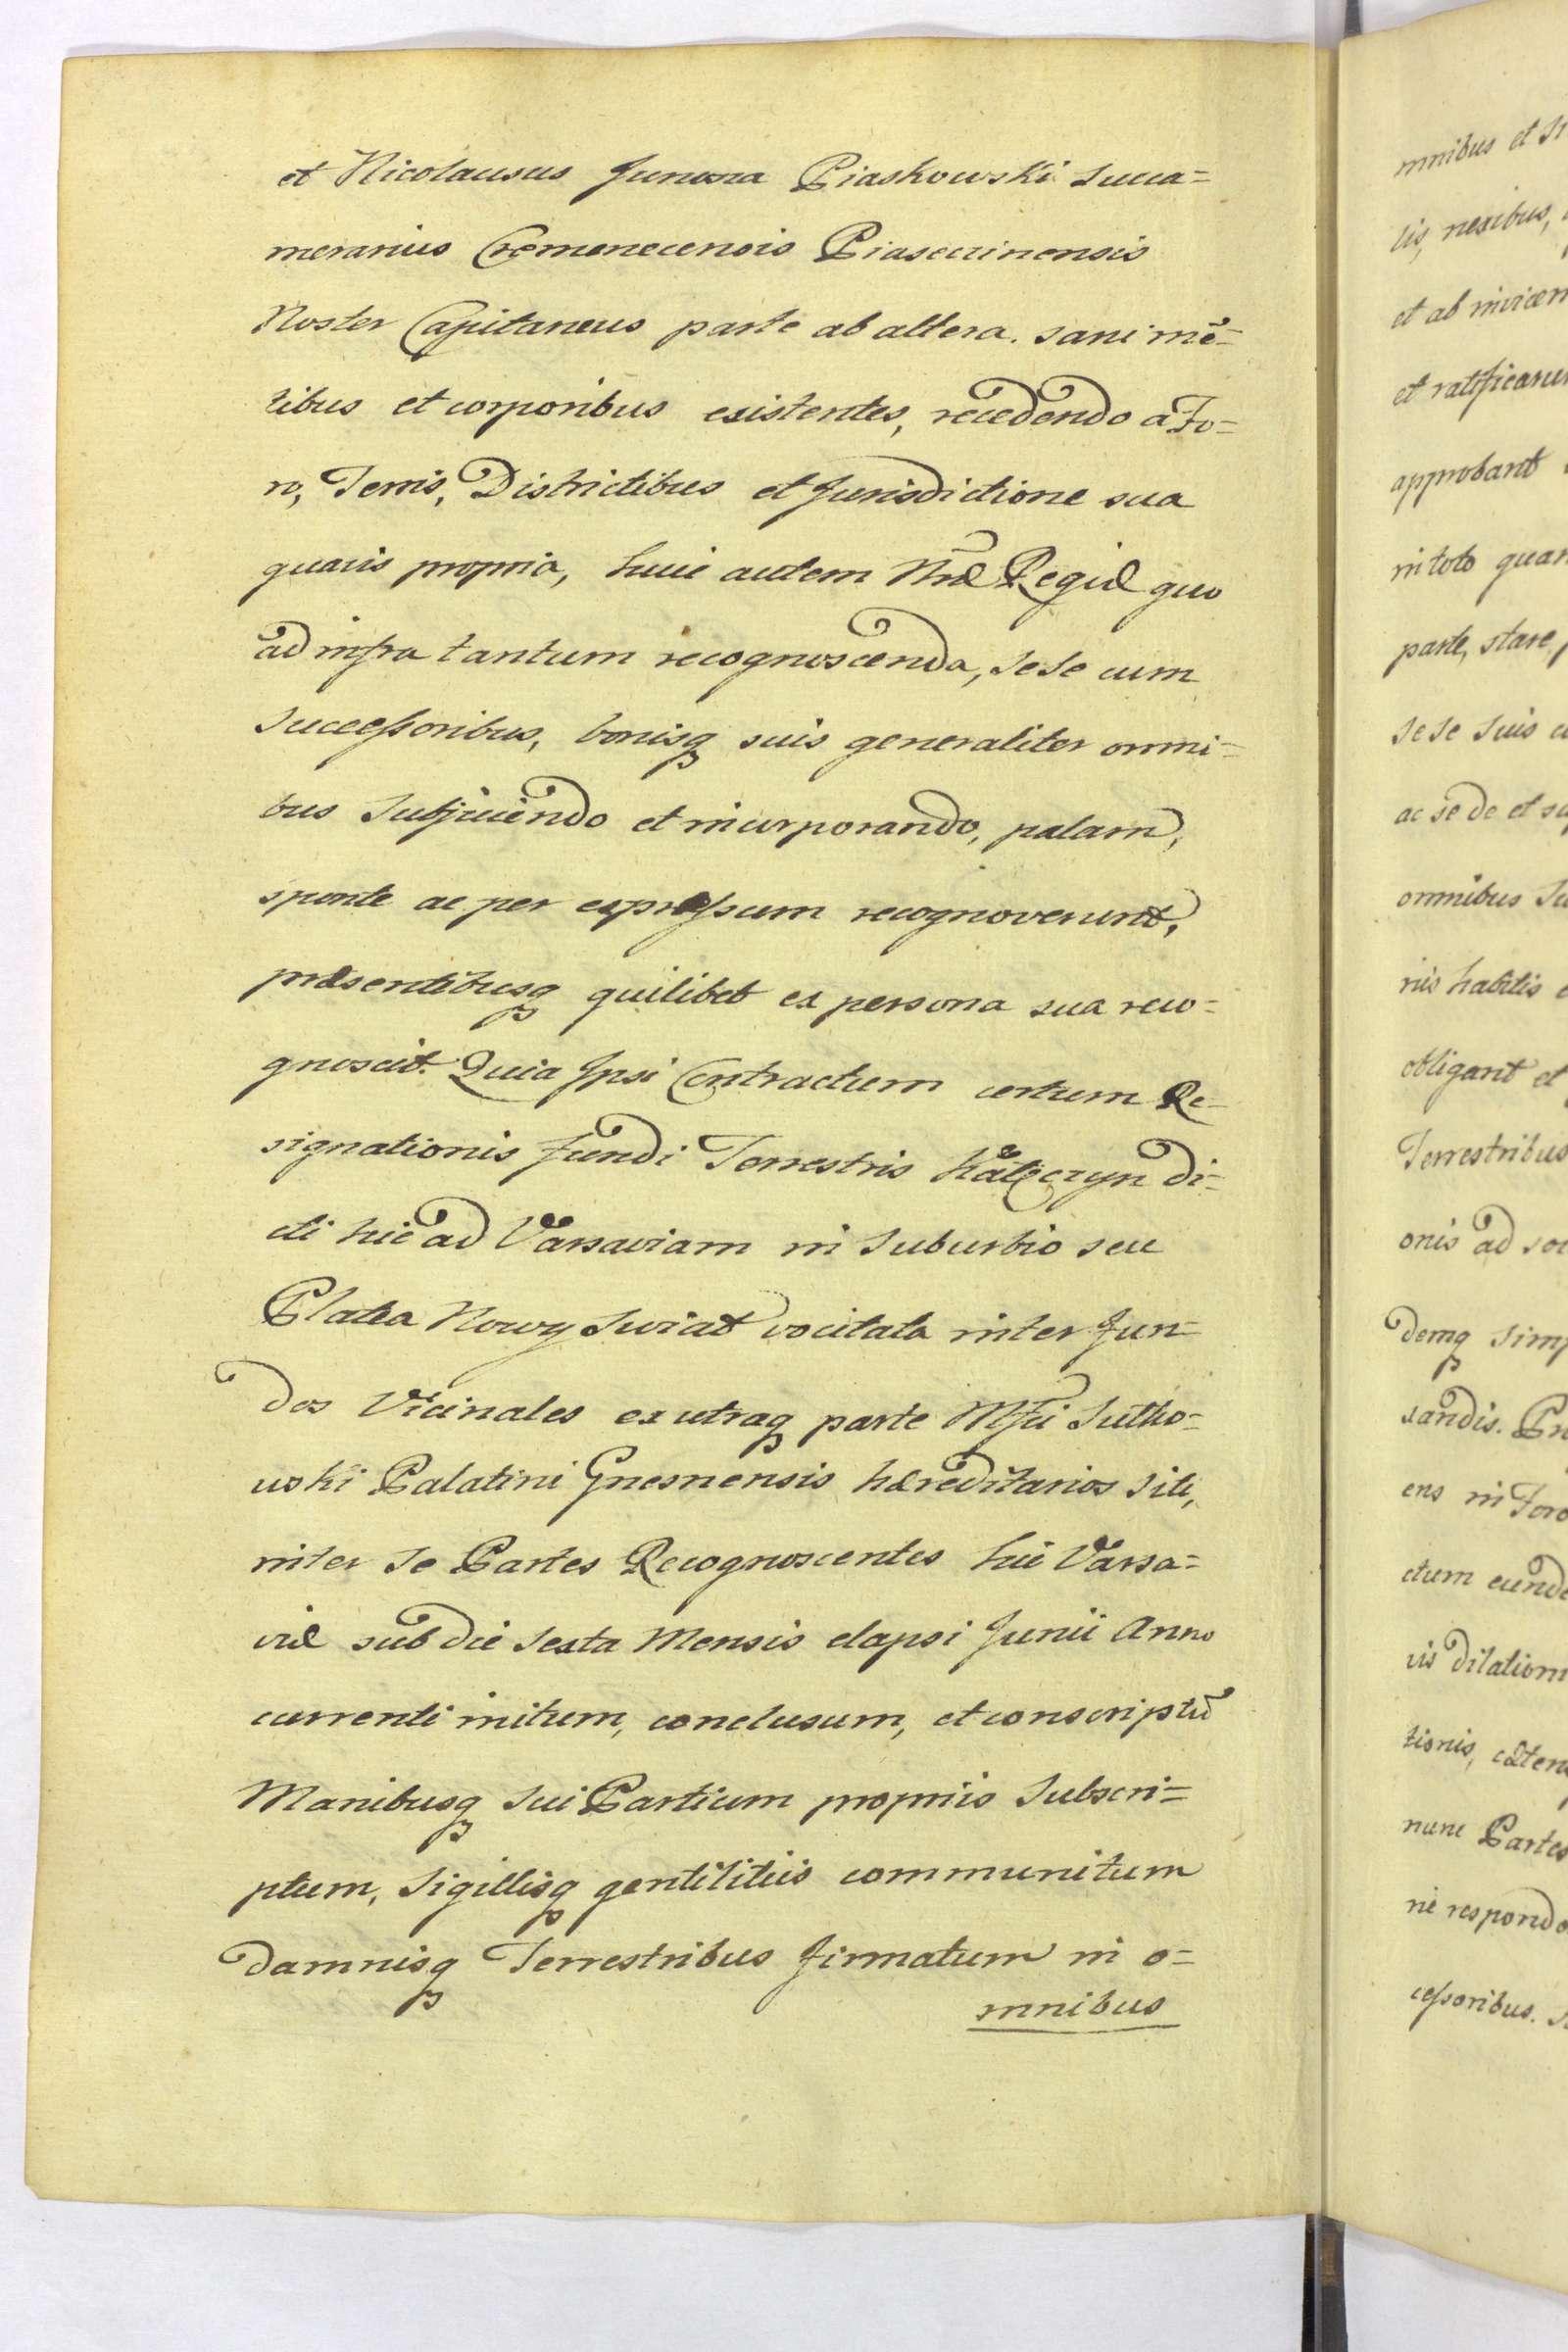 et Nicolausus Junosza Piaskowski Succa=
merarius Cremenecensis Piasecznensis
Noster Capitaneus parte ab altera. sani mē=
tibus et corporibus existentes, recedendo a Fo=
ro, Terris, Districtibus et Jurisdictione sua
quavis propria, huic autem Nrae Regiae quo
ad infra tantum recognoscenda, sese cum
Successoribus, bonisq suis generaliter omni=
bus Subjiciendo et incorporando, palam,
sponte ac per expressum recognoverunt,
praesentibusq quilibet ex persona sua reco=
gnoscit. Quia Ipsi Contractum certum Re=
signationis fundi Terrestris Kałęczyn di=
cti hic ad Varsaviam in Suburbio seu
Platea Nowy Swiat vocitata inter fun=
dos Vicinales ex utraq parte Mfci Sulko=
wski Palatini Gnesnensis haereditarios Siti,
inter Se Partes Recognoscentes hic Varsa=
viae sub die Sexta Mensis elapsi Junii Anno
currenti initum, conclusum, et conscriptū
Manibusq Sui Partium propriis Subscri=
ptum, Sigillisq gentilitiis communitum
damnisq Terrestribus firmatum in o=
mnibus
mnibus et
lis, nexibus,
et ab invicem
et ratificarun
approbant
in toto
parte, stare
sese suis
ac se de et
omnibus
nis habitis
obligant et
Terrestribus
onis ad
demq
sandis.
ens in Foro
ctum
vis dilation
tionis,
nunc Partes
ne respondo
cessoribus.